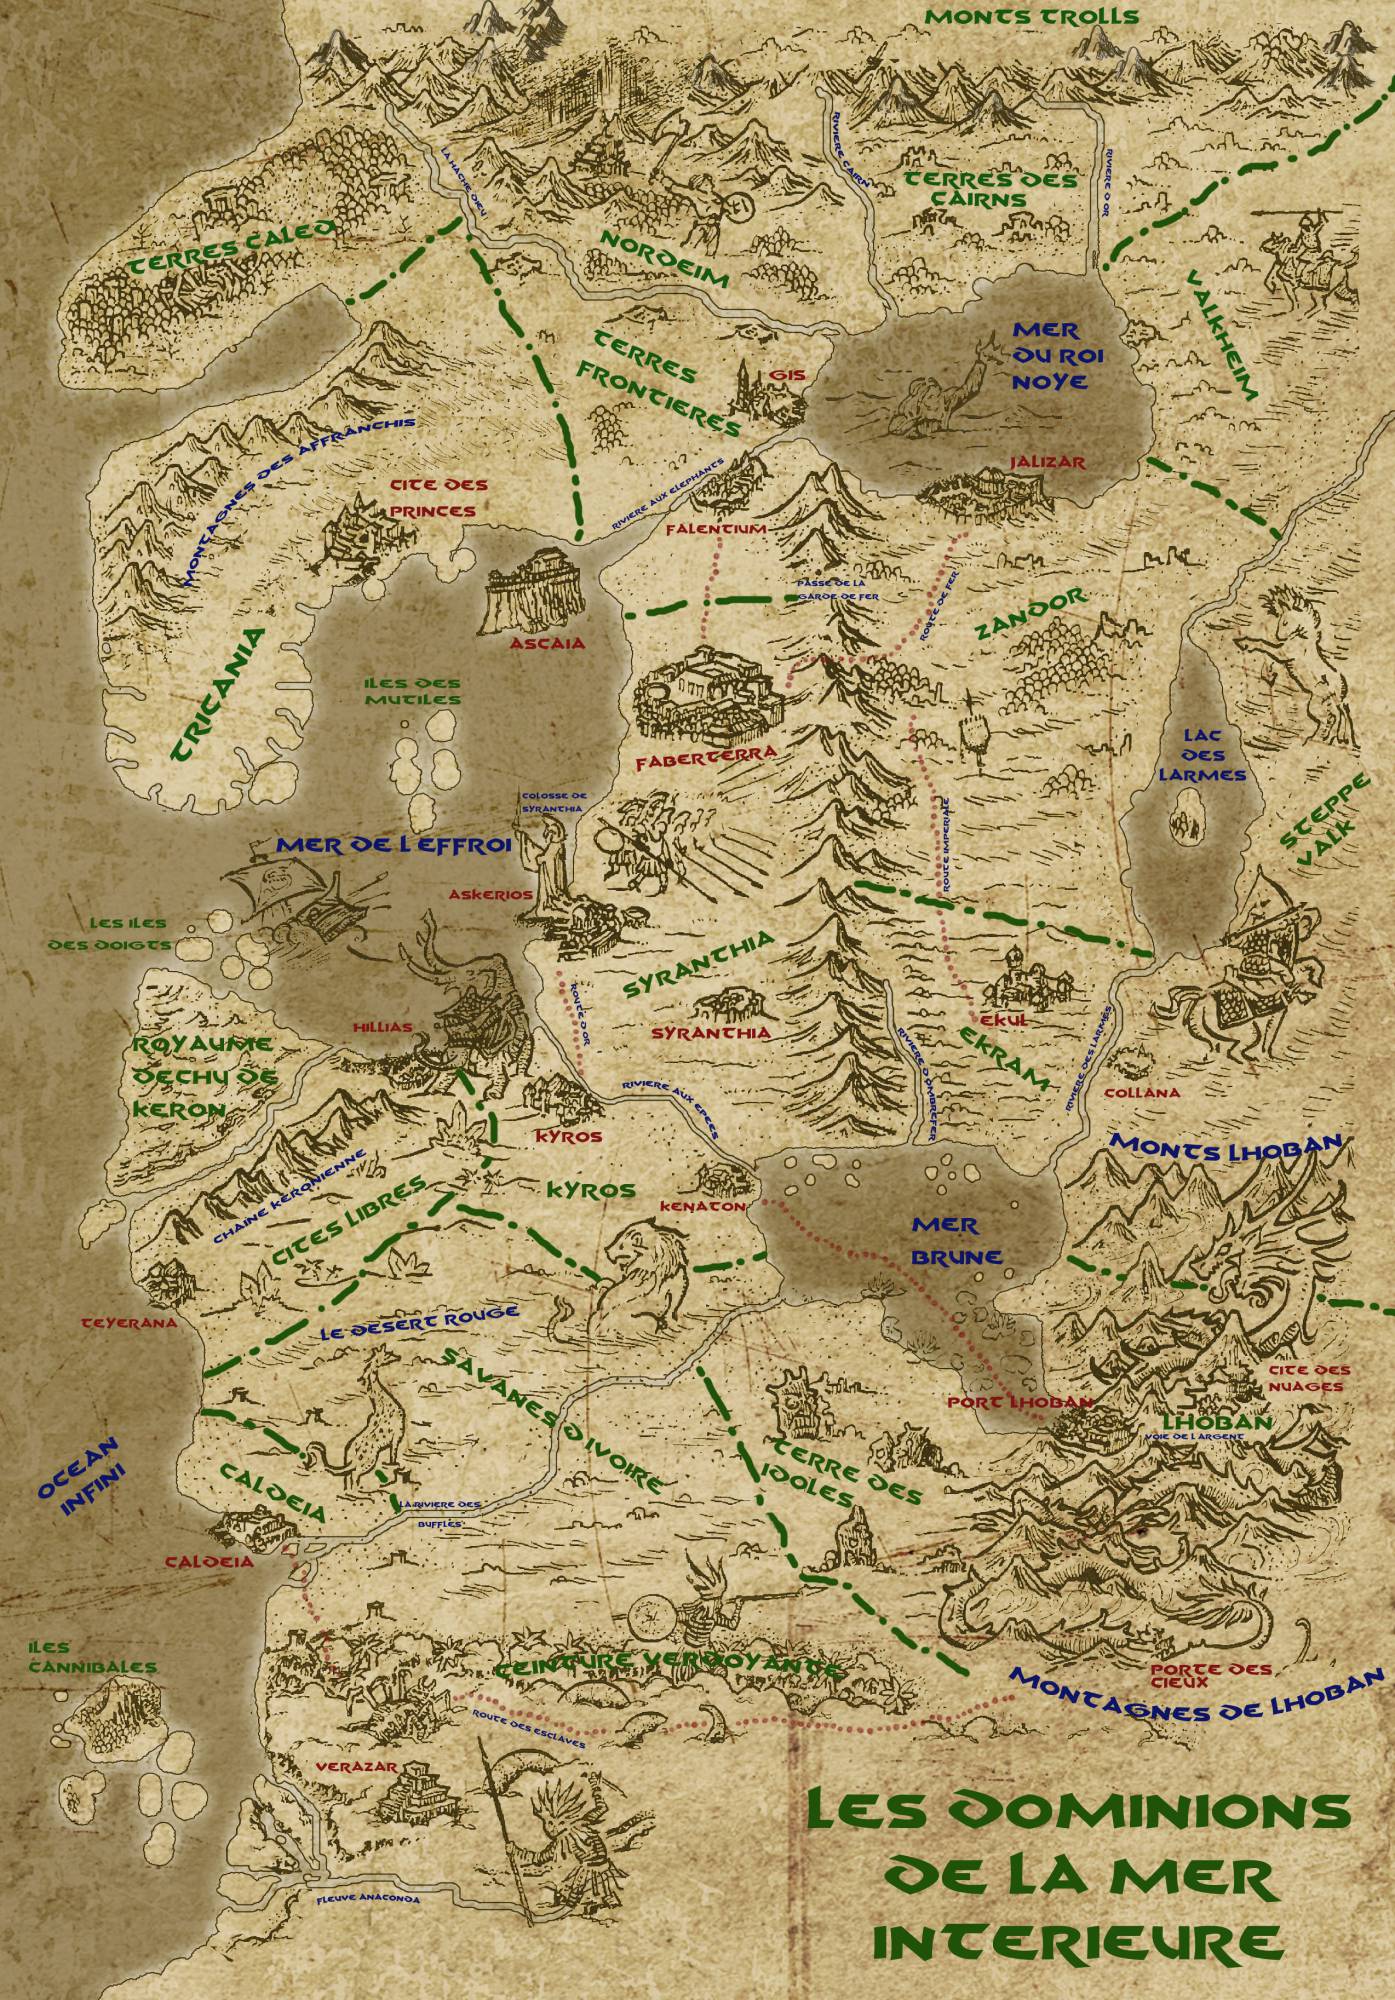 MONTS TROLLS
LA HACHE DIEU
RIVIERE CAIRN
TERRES DES
CAIRNS
RIVIERE D OR
TERRES CALED
NORDEIM
VALKHEIM
MER
DU ROI
NOYE
TERRES
FRONTIERES
GIS
MONTAGNES DES AFFRANCHIS
CITE DES
PRINCES
RIVIERE AUX ELEPHANTS
JALIZAR
FALENTIUM
PASSE DE LA
GARDE DE FER
ROUTE DE FER
ZANDOR
ASCAIA
TRICANIA
ILES DES
MUTILES
FABERTERRA
LAC
DES
LARMES
COLOSSE DE
SYRANTHIA
MER DE L EFFROI
ROUTE IMPERIALE
STEPPE
VALK
ASKERIOS
LES ILES
DES DOIGTS
SYRANTHIA
ROUTE D OR
SYRANTHIA
HILLIAS
EKUL
EKRAM
ROYAUME
DECHU DE
KERON
RIVIERE D OMBREFER
RIVIERE DES LARMES
COLLANA
RIVIERE AUX EPEES
KYROS
MONTS LHOBAN
CHAINE KERONIENNE
CITES LIBRES
KYROS
KENATON
MER
BRUNE
TEYERANA
LE DESERT ROUGE
SAVANES D IVOIRE
CITE DES
NUAGES
PORT LHOBAN
LHOBAN
VOIE DE L ARGENT
OCEAN
INFINI
CALDEIA
TERRE DES
IDOLES
LA RIVIERE DES
BUFFLES
CALDEIA
ILES
CANNIBALES
CEINTURE VERDOYANTE
PORTE DES
CIEUX
MONTAGNES DE LHOBAN
ROUTE DES ESCLAVES
VERAZAR
FLEUVE ANACONDA
LES DOMINIONS
DE LA MER
INTERIEURE